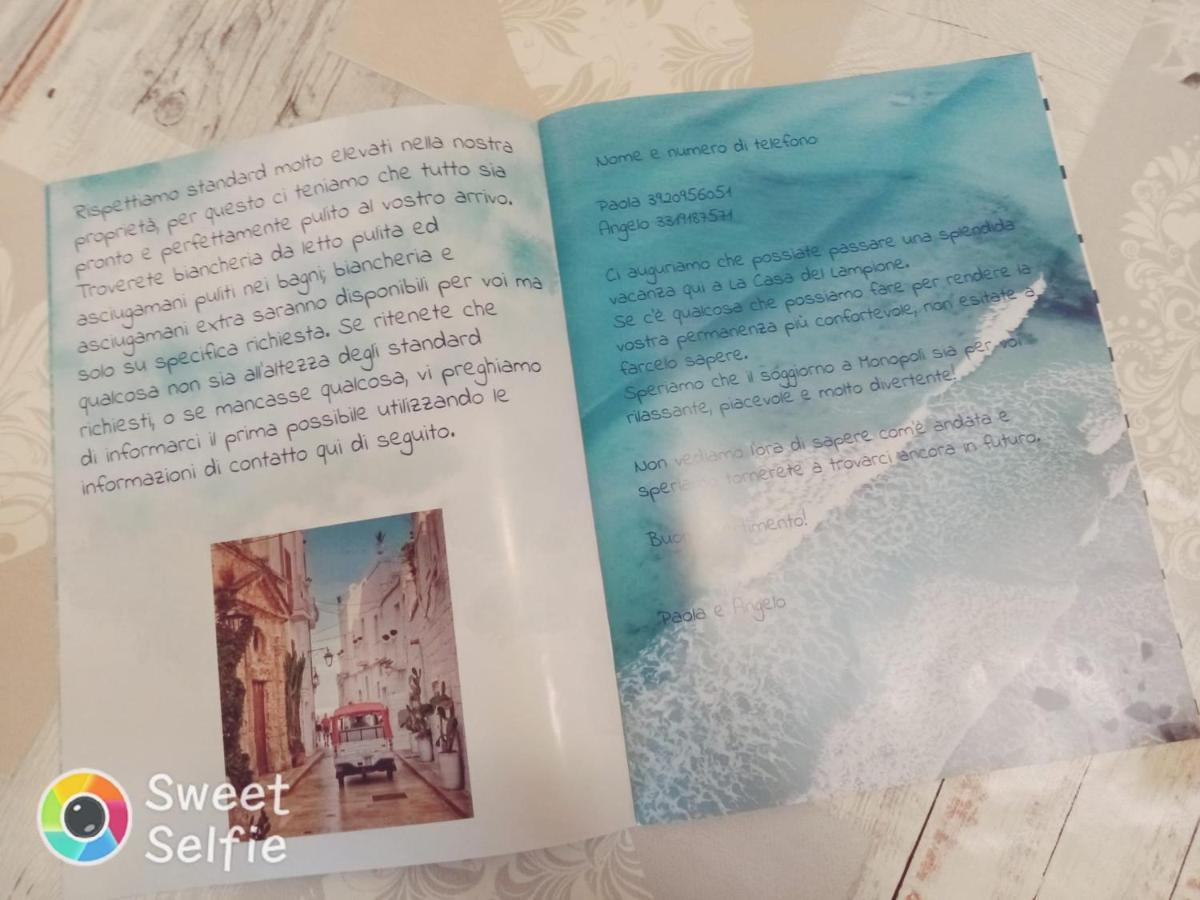 Rispettiamo standard molto elevati nella nostra
proprietà, per questo ci teniamo che tutto sia
pronto e perfettamente pulito al vostro arrivo.
Troverete biancheria da letto pulita ed
asciugamani puliti nei bagni; biancheria e
asciugamani extra saranno disponibili per voi ma
solo su specifica richiesta. Se ritenete che
qualcosa non sia all'altezza degli standard
richiesti, o se mancasse qualcosa, vi preghiamo
di informarci il prima possibile utilizzando le
informazioni di contatto qui di seguito.
Nome e numero di telefono
Paola 3920956051
Angelo 3319187571
Ci auguriamo che possiate passare una splendida
vacanza qui a La Casa del Lampione.
Se c'è qualcosa che possiamo fare per rendere la
vostra permanenza più confortevole, non esitate a
farcelo sapere.
Speriamo che il soggiorno a Monopoli sia per voi
rilassante, piacevole e molto divertente!
Non vediamo l'ora di sapere com'è andata e
tornerete a trovarci ancora in futuro.
Paola e Angelo
Sweet
Selfie